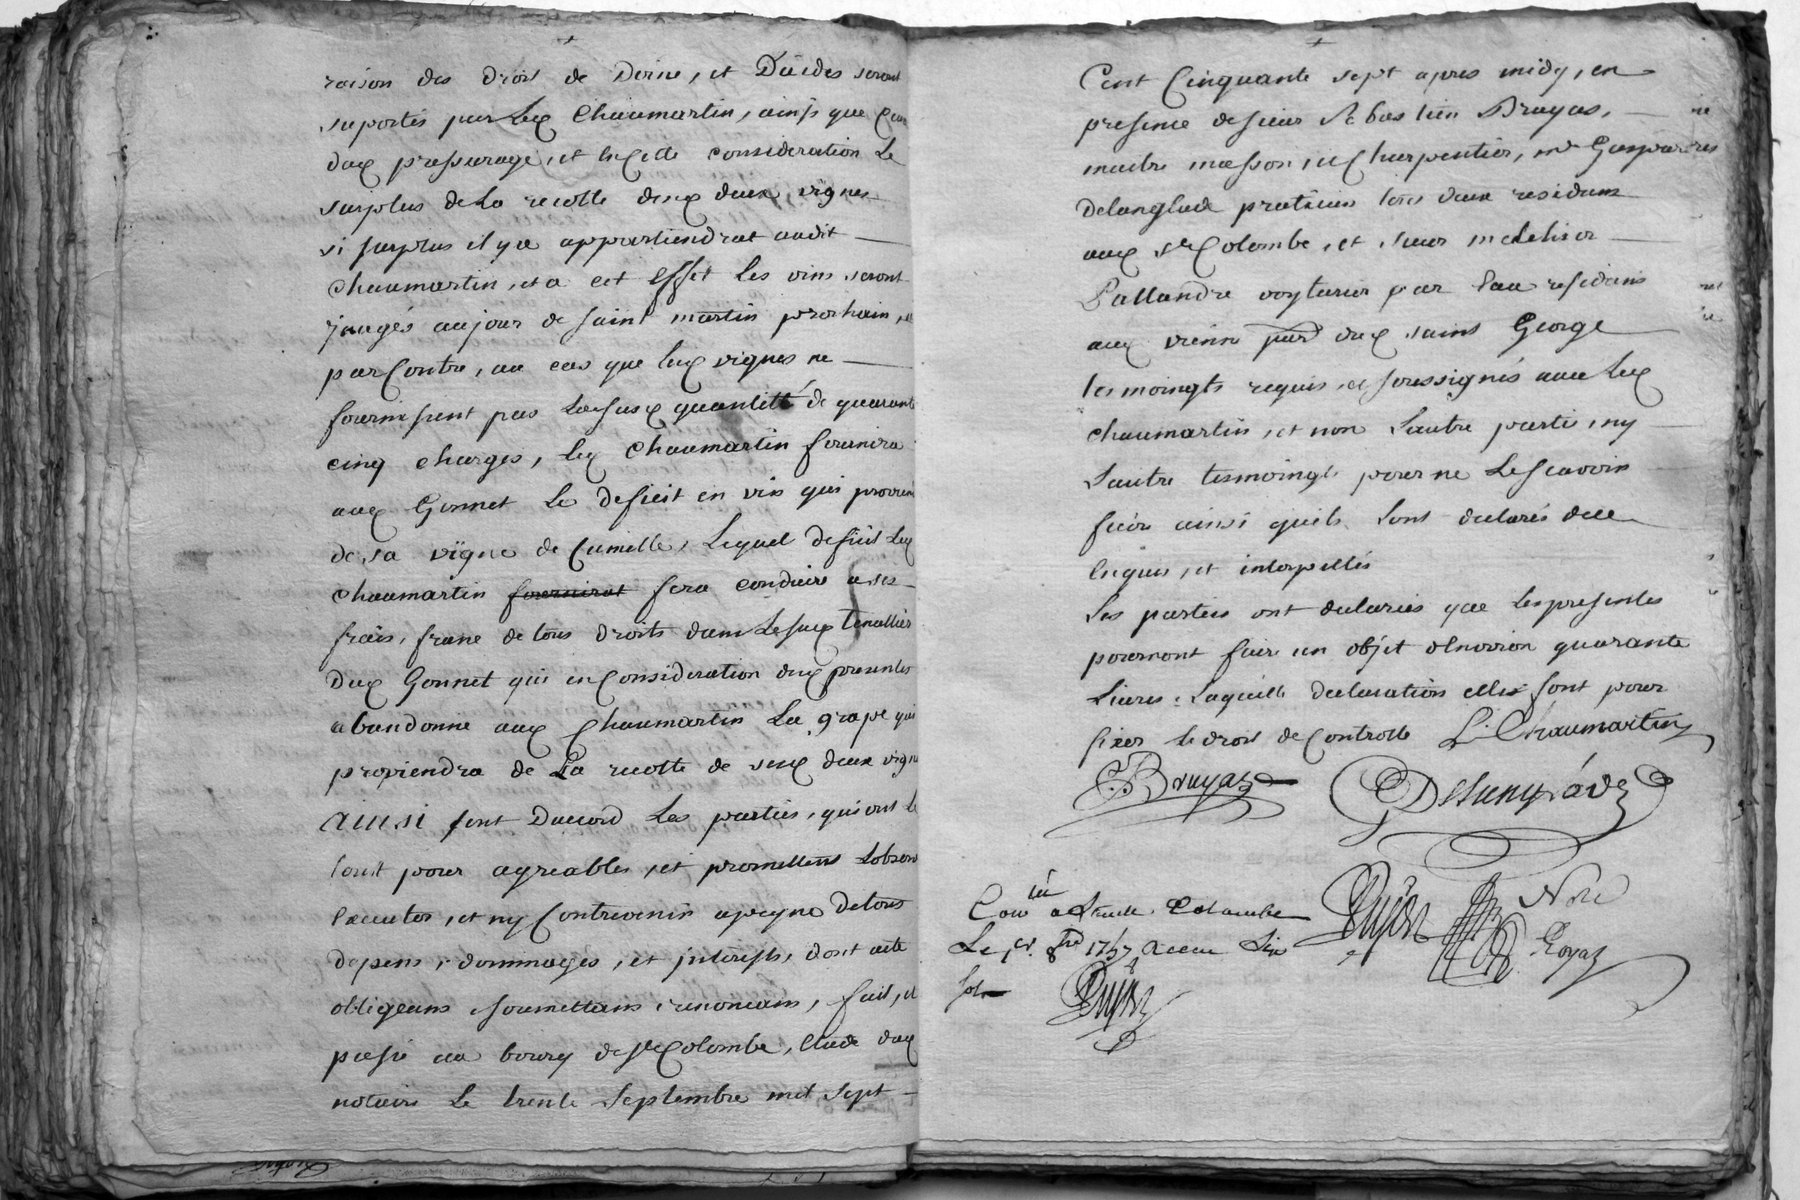 raison des drois de Doine, et Däides seront
suportés par Led Chaumartin, ainsi que ceux
dud pressurage, et en cette consideration Le
surplus de La recolte desd deux vignes
si surplus il y a appartiendrat audit
chaumartin, et a cet effet les vins seront
jaugés au jour de saint martin prochain, et
par Contre, au cas que lesd vignes ne
fournissent pas La susd quantitté de quarante
cinq charges, led Chaumartin fournira
aud Gonnet Le deficit en vin qui provient
de sa vigne de Cumelle, Lequel deficit Led
chaumartin fournirat fera conduire a ses
frais, franc de tous droits dans Le susd tenallier
Dud Gonnet qui en Consideration des presentes
abandonne aud Chaumartin La grape qui
proviendra de La recolte de sesd deux vignes
Ainsi sont Daccord Les parties, qui ont le
tout pour agreables, et promettent Lobserver
Executer, et ny Contrevenir a peyne de tous
depens, dommages, et interests, dont acte
obligeans, soumettans, renoncans, fait, et
passé au bourg de Ste Colombe, Etude dud
notaire Le trente septembre mil sept
Cent Cinquante sept apres midy, en
presence de sieur Sebastien Bruyas,
maitre masson, et Charpentier, mr Gaspard
Delanglade praticien tous deux residans
aud Ste Colombe, et sieur melchior
Lallandre voyturier par Eau residans
aud vienne parr dud saint George
tesmoingts requis et soussignés avec Led
chaumartin, et non Lautre partie, ny
Lautre tesmoingt pour ne Le scavoir
faire ainsi quils Lont declarés de ce
enquis, et interpellés
Les parties ont declarées que les presentes
pourront faire un objet denviron quarante
Livres, Laquelle declaration elles font pour
fixer le droit de Controlle L. Chaumartin
S. Bruyas
Delanglade
Conlé a Sainte Colombe
Le 1er 8bre 1757 Receu Six
sols
Nore
Royaz